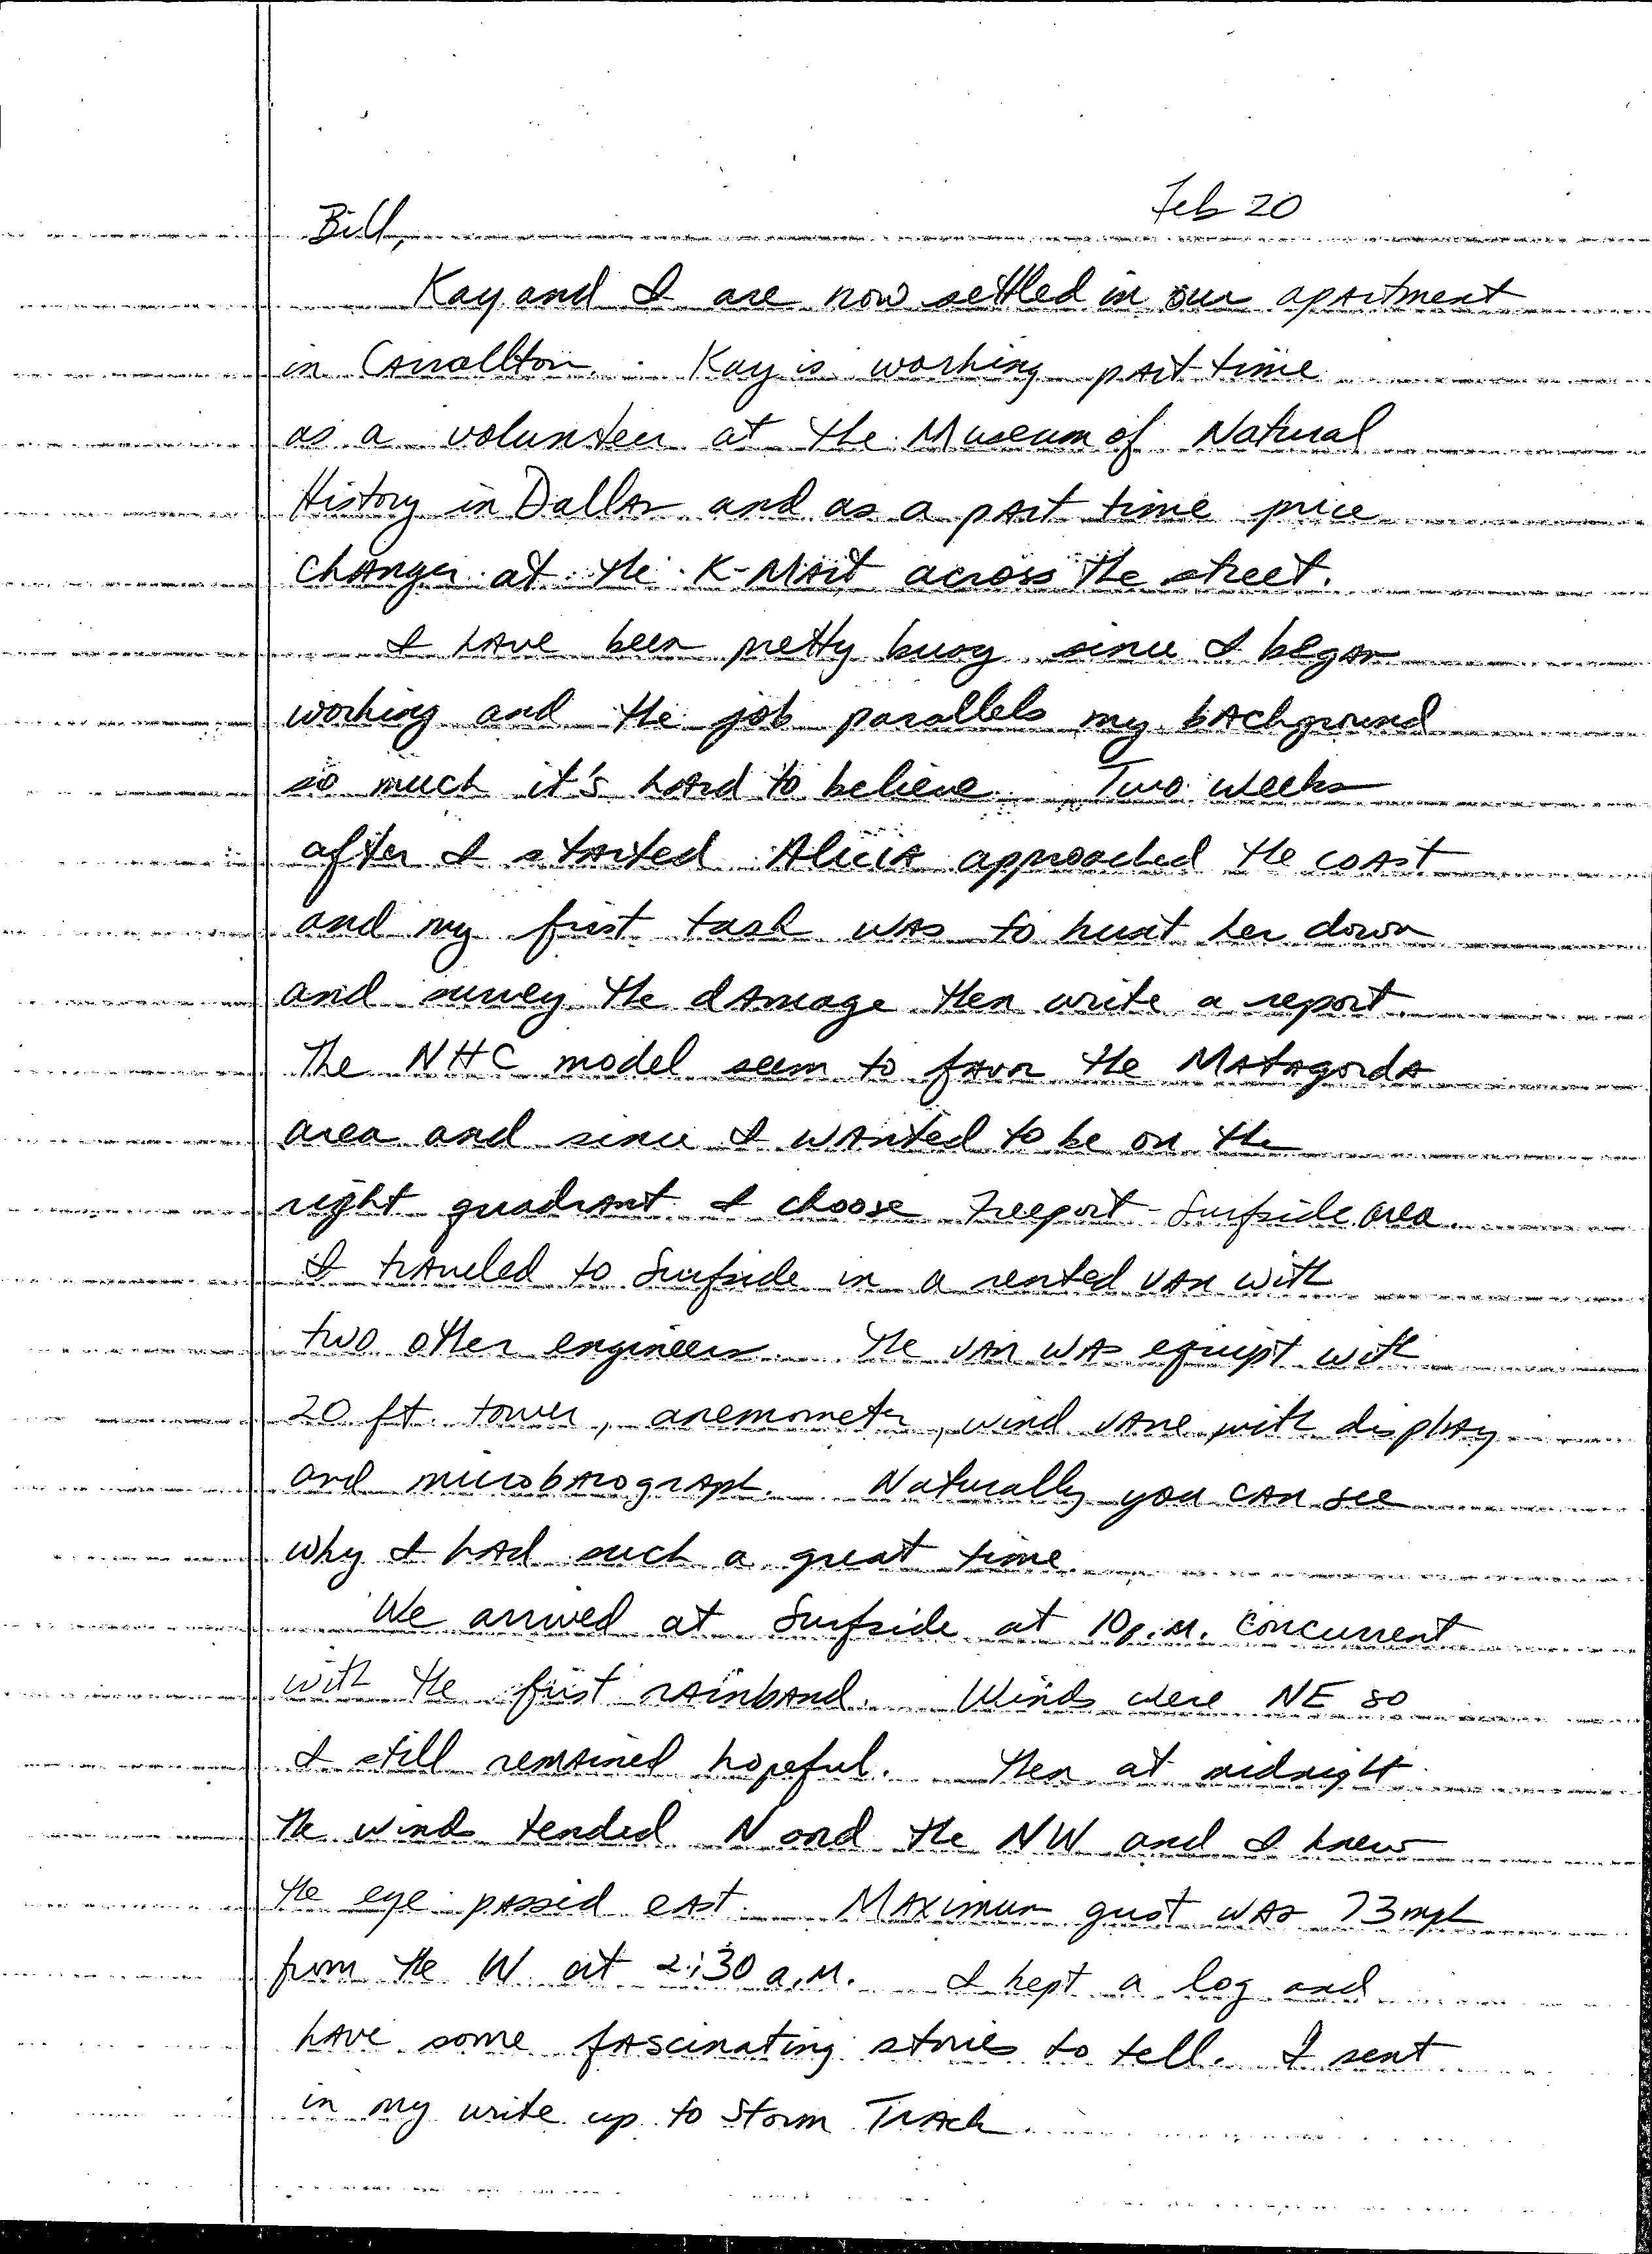 Feb 20
Bill,
Kay and I are now settled in our apartment
in Carrollton. Kay is working part time
as a volunteer at the Museum of Natural
History in Dallas and as a part time price
changer at the K-Mart across the street.
I have been pretty busy since I began
working and the job parallels my background
so much it's hard to believe. Two weeks
after I started Alicia approached the coast
and my first task was to hunt her down
and survey the damage then write a report.
The NHC model seem to favor the Matagorda
area and since I wanted to be on the
right quadrant I choose Freeport-Surfside area.
I traveled to Surfside in a rented van with
two other engineers. The van was equipt with
20 ft. tower, anemometer, wind vane with display
and microbarograph. Naturally you can see
why I had such a great time.
We arrived at Surfside at 10 p.m. concurrent
with the first rainband. Winds were NE so
I still remained hopeful. Then at midnight
the winds tended N and the NW and I knew
the eye passed east. Maximum gust was 73 mph
from the W at 2:30 a.m. I kept a log and
have some fascinating stories to tell. I sent
in my write up to Storm Track.